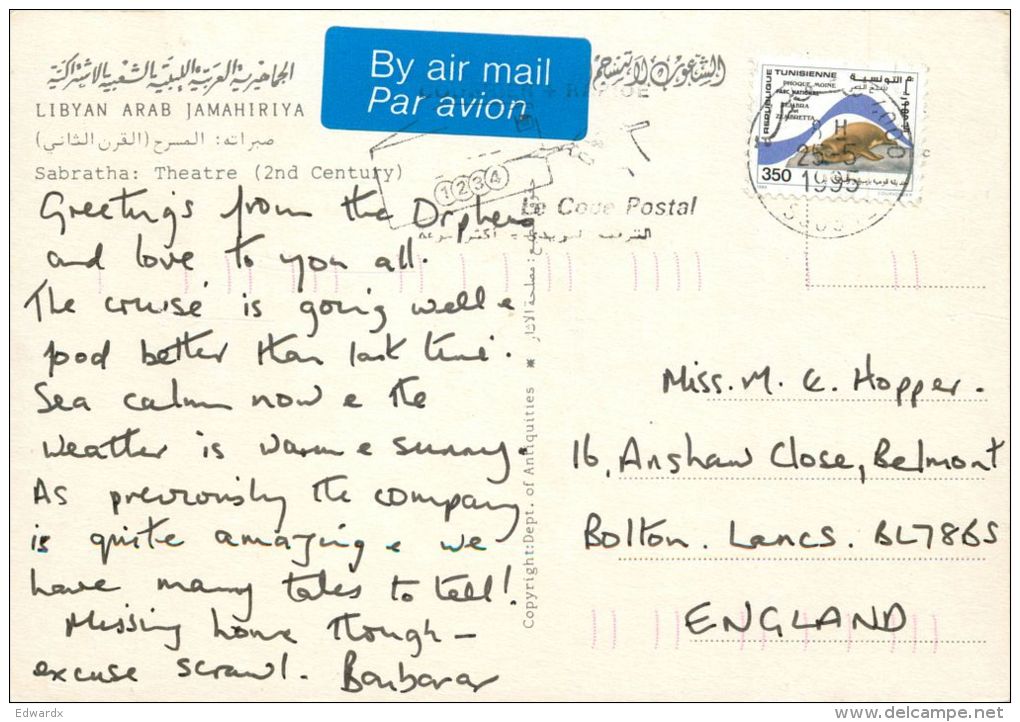 الجماهيرية العربية الليبية الشعبية الاشتراكية
LIBYAN ARAB JAMAHIRIYA
صبراته: المسرح (القرن الثاني)
Sabratha: Theatre (2nd Century)
By air mail
Par avion
REPUBLIQUE TUNISIENNE
PHOQUE MOINE
PARC NATIONAL
ZEMBRA
ZEMBRETTA
350
8 H
25-5
1995
1234
Le Code Postal
Greetings from the Orpheus
and love to you all.
The cruise is going well &
food better than last time.
Sea calm now & the
weather is warm & sunny.
As previously the company
is quite amazing & we
have many tales to tell!
Missing home though -
excuse scrawl. Barbara
Copyright: Dept. of Antiquities *
Miss. M. E. Hopper.
16, Anshaw Close, Belmont
Bolton. Lancs. BL7 8BS
ENGLAND
Edwardx
delcampe.net